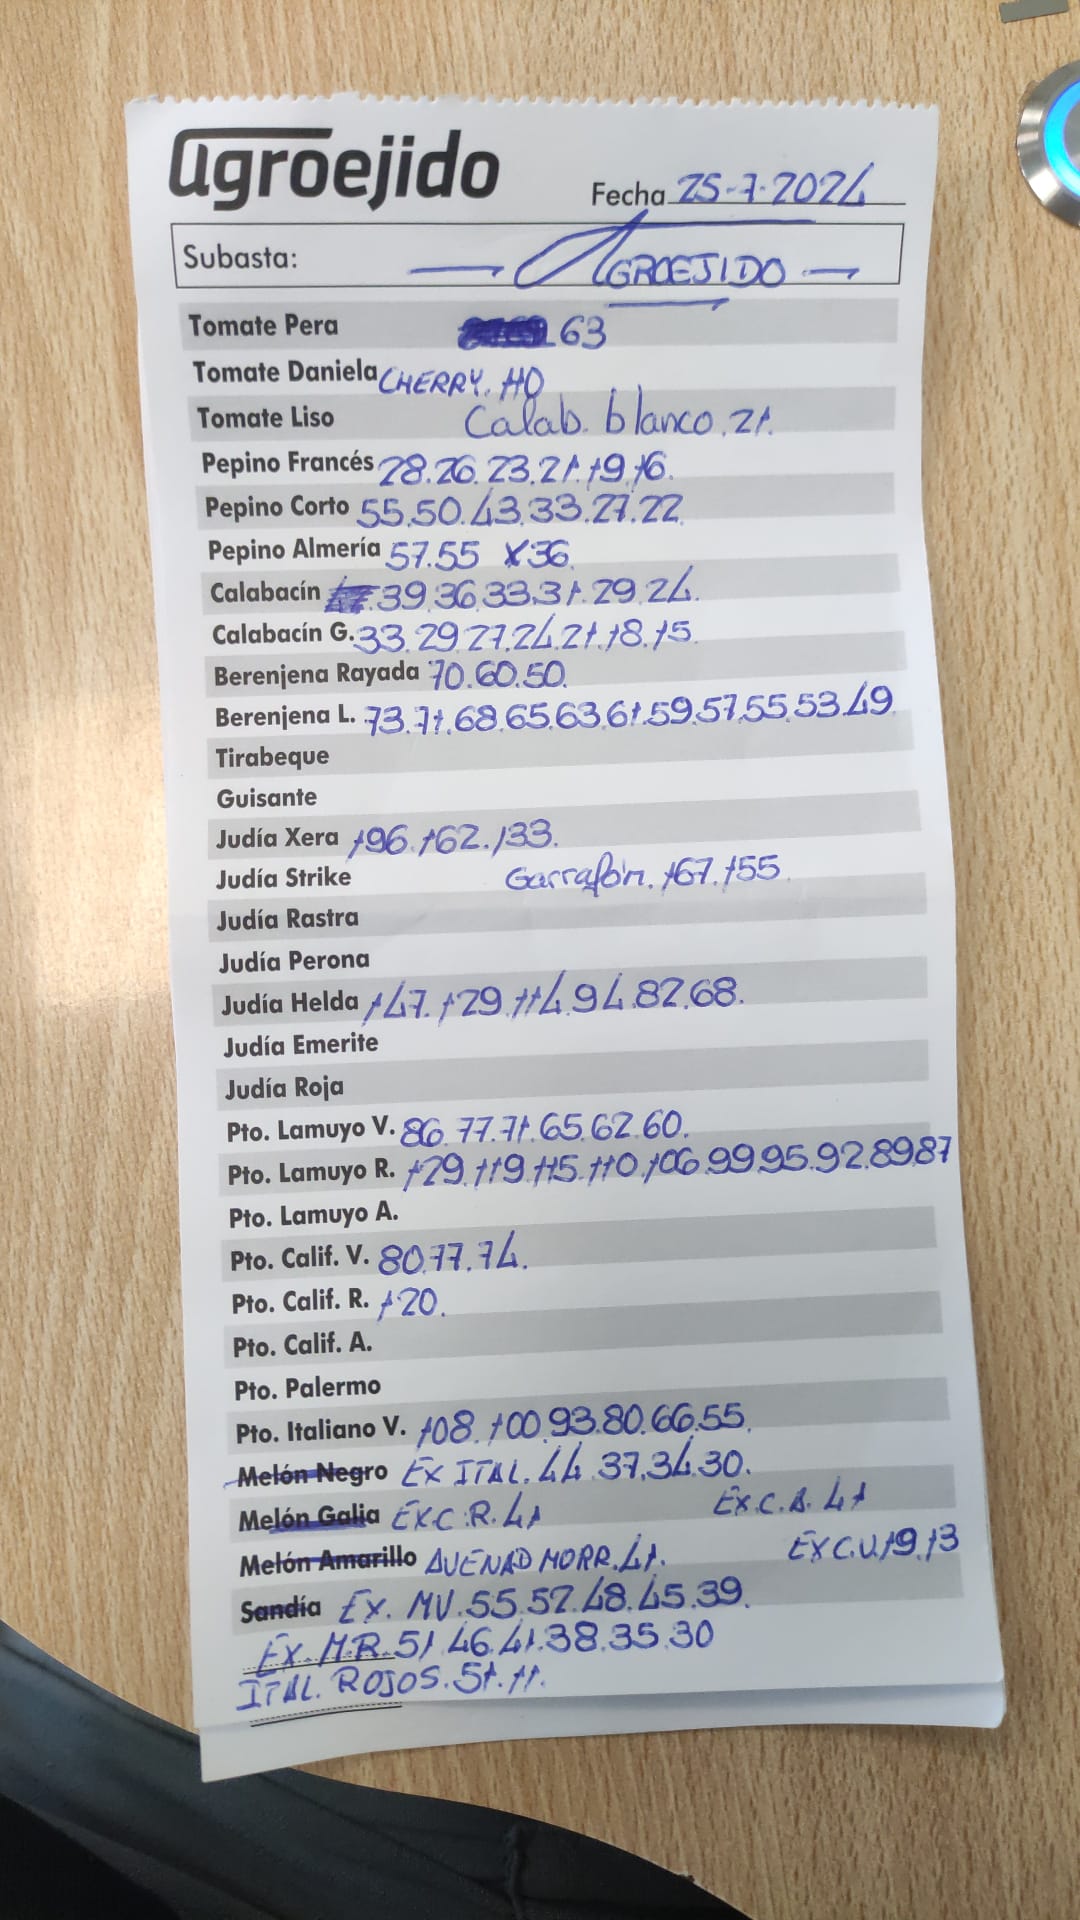 agroejido
Fecha 25-7-2024
Subasta: — AGROEJIDO —
Tomate Pera 63
Tomate Daniela CHERRY. 110
Tomate Liso Calab. blanco. 21.
Pepino Francés 28.26.23.21.19.16.
Pepino Corto 55.50.43.33.27.22.
Pepino Almería 57.55 X36.
Calabacín 39.36.33.31.29.24.
Calabacín G. 33.29.27.24.21.18.15.
Berenjena Rayada 70.60.50.
Berenjena L. 73.71.68.65.63.61.59.57.55.53.49
Tirabeque
Guisante
Judía Xera 196.162.133.
Judía Strike Garrafón. 167.155
Judía Rastra
Judía Perona
Judía Helda 147.129.114.94.82.68.
Judía Emerite
Judía Roja
Pto. Lamuyo V. 86.77.71.65.62.60.
Pto. Lamuyo R. 129.119.115.110.106.99.95.92.89.87
Pto. Lamuyo A.
Pto. Calif. V. 80.77.74.
Pto. Calif. R. 120.
Pto. Calif. A.
Pto. Palermo
Pto. Italiano V. 108.100.93.80.66.55.
Melón Negro EX ITAL. 44.37.34.30.
Melón Galia EX.C.R. 41 EX.C.A. 41
Melón Amarillo AVENAD MORR. 41. EX C.V. 19.13
Sandía EX. MV. 55.52.48.45.39.
EX. M.R. 51.46.41.38.35.30
ITAL. ROJOS. 51.11.